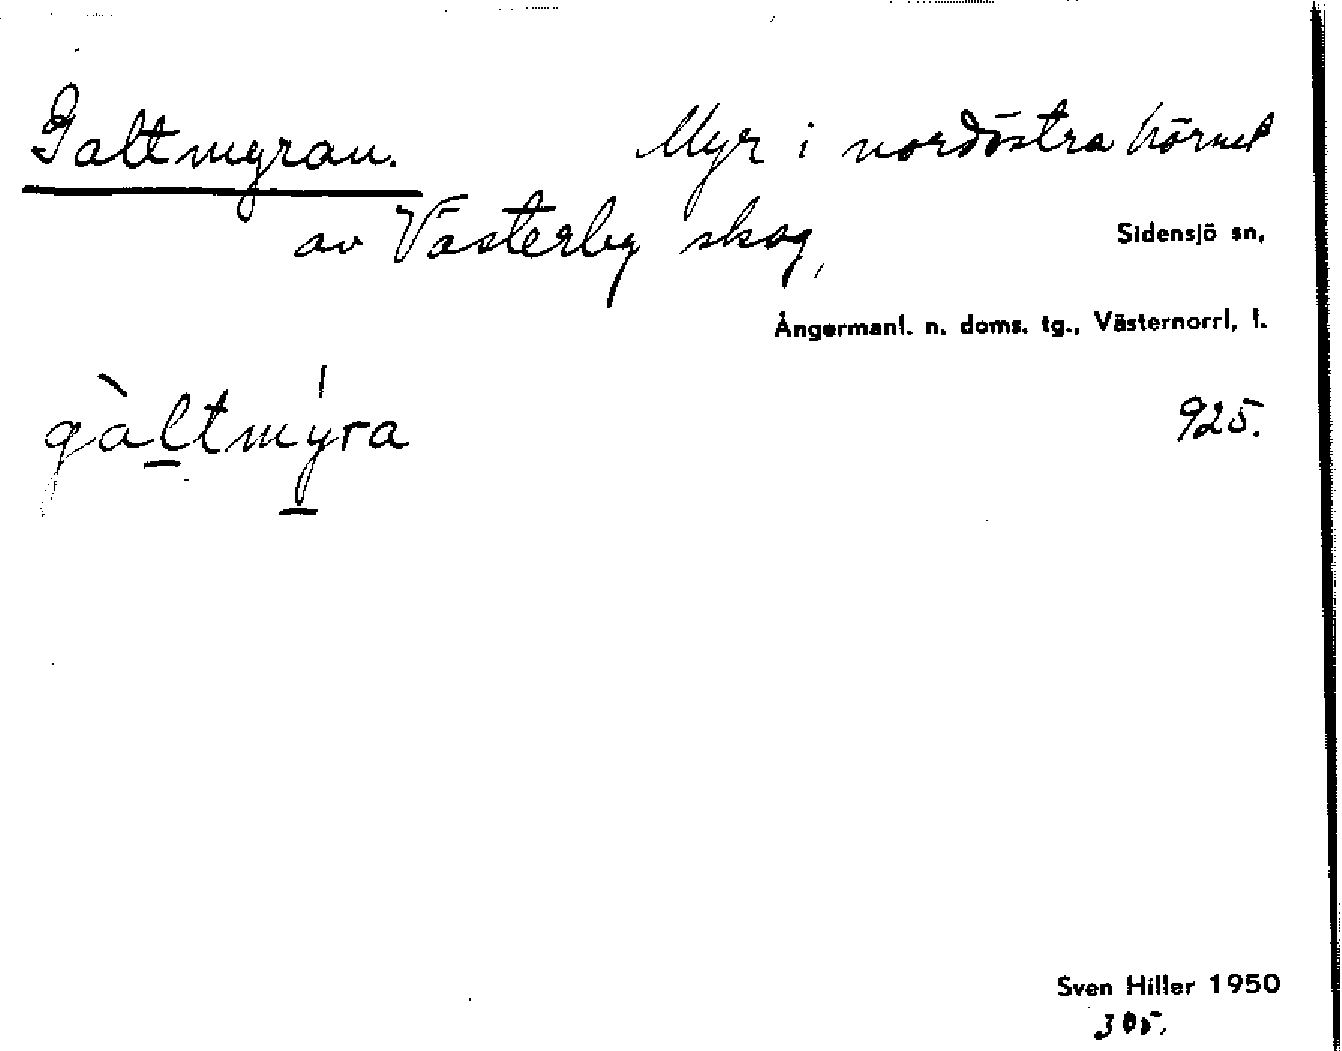 Galtmyran. Myr i nordöstra hörnet
av Västerby skog,
Sidensjö sn,
Ångermanl. n. doms. tg., Västernorrl. l.
gàltmýra
925.
Sven Hiller 1950
305.